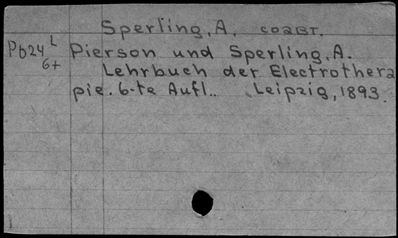 Sperling, A. соавт.
Pb24 L Pierson und Sperling, A.
6+ Lehrbuch der Electrothera
pie. 6-te Aufl.. Leipzig, 1893.